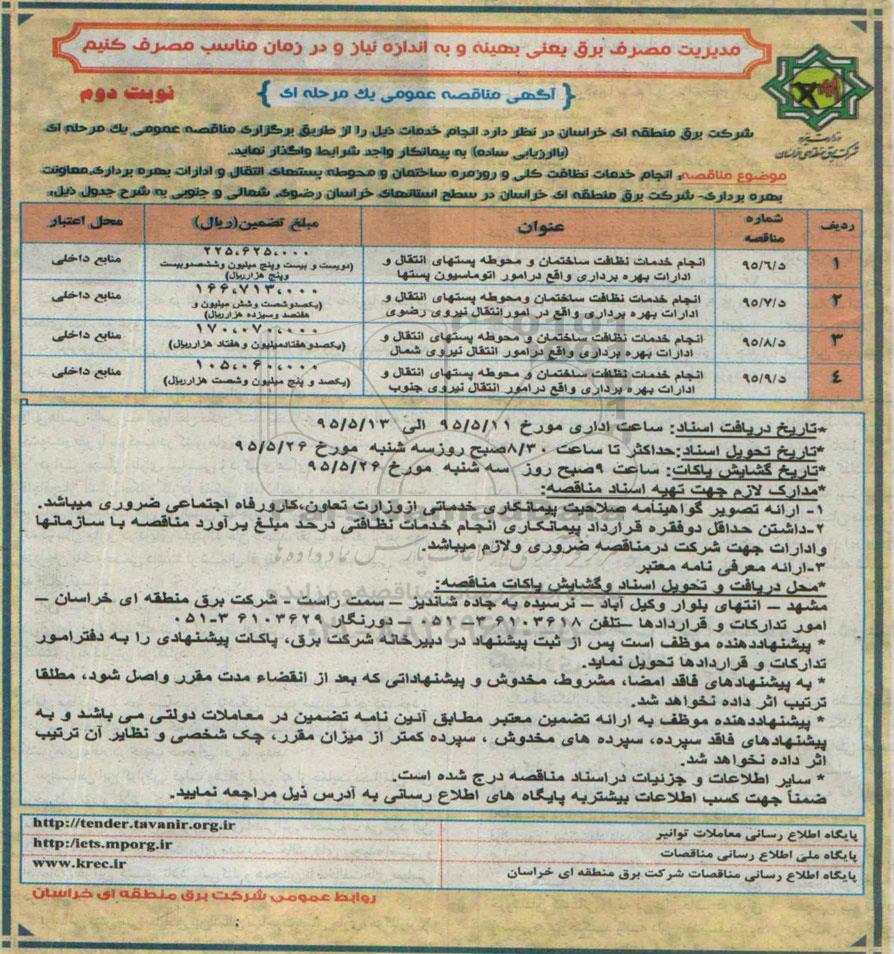 مدیریت مصرف برق یعنی بهینه و به اندازه نیاز و در زمان مناسب مصرف کنیم
آگهی مناقصه عمومی یك مرحله ای
نوبت دوم
وزارت نیرو
شرکت برق منطقه ای خراسان
شرکت برق منطقه ای خراسان در نظر دارد انجام خدمات ذیل را از طریق برگزاری مناقصه عمومی یك مرحله ای
(باارزیابی ساده) به پیمانکار واجد شرایط واگذار نماید.
موضوع مناقصه: انجام خدمات نظافت کلی و روزمره ساختمان و محوطه پستهای انتقال و ادارات بهره برداری،معاونت
بهره برداری- شرکت برق منطقه ای خراسان در سطح استانهای خراسان رضوی، شمالی و جنوبی به شرح جدول ذیل.
ردیف شماره مناقصه عنوان مبلغ تضمین(ریال) محل اعتبار
۱ ۹۵/۶/د انجام خدمات نظافت ساختمان و محوطه پستهای انتقال و ۲۲۵،۶۲۵،۰۰۰ منابع داخلی
ادارات بهره برداری واقع درامور اتوماسیون پستها (دویست و بیست وپنج میلیون وششصدوبیست
وپنج هزارریال)
۲ ۹۵/۷/د انجام خدمات نظافت ساختمان ومحوطه پستهای انتقال و ۱۶۶،۷۱۳،۰۰۰ منابع داخلی
ادارات بهره برداری واقع در امورانتقال نیروی رضوی (یکصدوشصت وشش میلیون و
هفتصد وسیزده هزارریال)
۳ ۹۵/۸/د انجام خدمات نظافت ساختمان و محوطه پستهای انتقال و ۱۷۰،۰۷۰،۰۰۰ منابع داخلی
ادارات بهره برداری واقع درامور انتقال نیروی شمال (یکصدوهفتادمیلیون و هفتاد هزارریال)
۴ ۹۵/۹/د انجام خدمات نظافت ساختمان و محوطه پستهای انتقال و ۱۰۵،۰۶۰،۰۰۰ منابع داخلی
ادارات بهره برداری واقع درامور انتقال نیروی جنوب (یکصد و پنج میلیون وشصت هزارریال)
*تاریخ دریافت اسناد: ساعت اداری مورخ ۹۵/۵/۱۱ الی ۹۵/۵/۱۳
*تاریخ تحویل اسناد:حداکثر تا ساعت ۸/۳۰صبح روزسه شنبه مورخ ۹۵/۵/۲۶
*تاریخ گشایش پاکات: ساعت ۹صبح روز سه شنبه مورخ ۹۵/۵/۲۶
*مدارک لازم جهت تهیه اسناد مناقصه:
۱- ارائه تصویر گواهینامه صلاحیت پیمانکاری خدماتی ازوزارت تعاون،کارورفاه اجتماعی ضروری میباشد.
۲-داشتن حداقل دوفقره قرارداد پیمانکاری انجام خدمات نظافتی درحد مبلغ برآورد مناقصه با سازمانها
وادارات جهت شرکت درمناقصه ضروری ولازم میباشد.
۳-ارائه معرفی نامه معتبر
*محل دریافت و تحویل اسناد وگشایش پاکات مناقصه:
مشهد – انتهای بلوار وکیل آباد – نرسیده به جاده شاندیز – سمت راست - شرکت برق منطقه ای خراسان –
امور تدارکات و قراردادها –تلفن ۳۶۱۰۳۶۱۸-۰۵۱ – دورنگار ۳۶۱۰۳۶۲۹-۰۵۱
* پیشنهاددهنده موظف است پس از ثبت پیشنهاد در دبیرخانه شرکت برق، پاکات پیشنهادی را به دفترامور
تدارکات و قراردادها تحویل نماید.
* به پیشنهادهای فاقد امضا، مشروط، مخدوش و پیشنهاداتی که بعد از انقضاء مدت مقرر واصل شود، مطلقا
ترتیب اثر داده نخواهد شد.
* پیشنهاددهنده موظف به ارائه تضمین معتبر مطابق آئین نامه تضمین در معاملات دولتی می باشد و به
پیشنهادهای فاقد سپرده، سپرده های مخدوش ، سپرده کمتر از میزان مقرر، چک شخصی و نظایر آن ترتیب
اثر داده نخواهد شد.
* سایر اطلاعات و جزئیات دراسناد مناقصه درج شده است.
ضمناً جهت کسب اطلاعات بیشتربه پایگاه های اطلاع رسانی به آدرس ذیل مراجعه نمایید.
پایگاه اطلاع رسانی معاملات توانیر http://tender.tavanir.org.ir
پایگاه ملی اطلاع رسانی مناقصات http:/iets.mporg.ir
پایگاه اطلاع رسانی مناقصات شرکت برق منطقه ای خراسان www.krec.ir
روابط عمومی شرکت برق منطقه ای خراسان